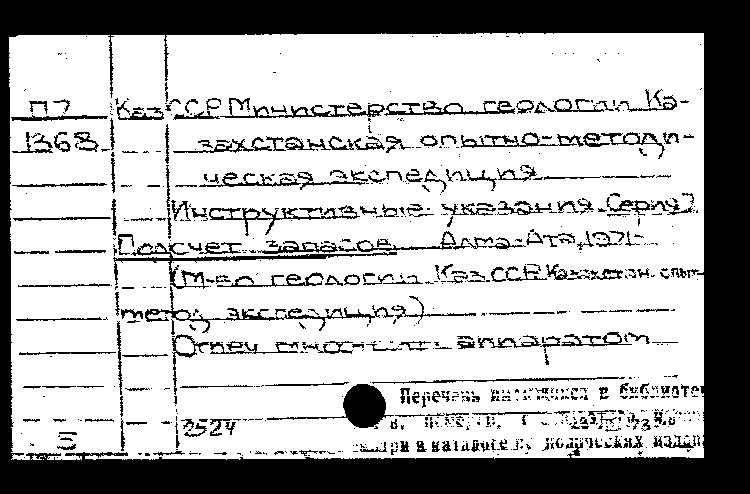 П7 КазССР Министерство геологии Ка-
1368 захстанская опытно-методи-
ческая экспедиция
Инструктивные указания. Серия?
Подсчет запасов. Алма-Ата, 1971-
(М-во геологии КазССР. Казахстан. опыт-
метод экспедиция)
Отпеч аппаратом
Перечень в библиоте
2524 в.
5 в каталоге